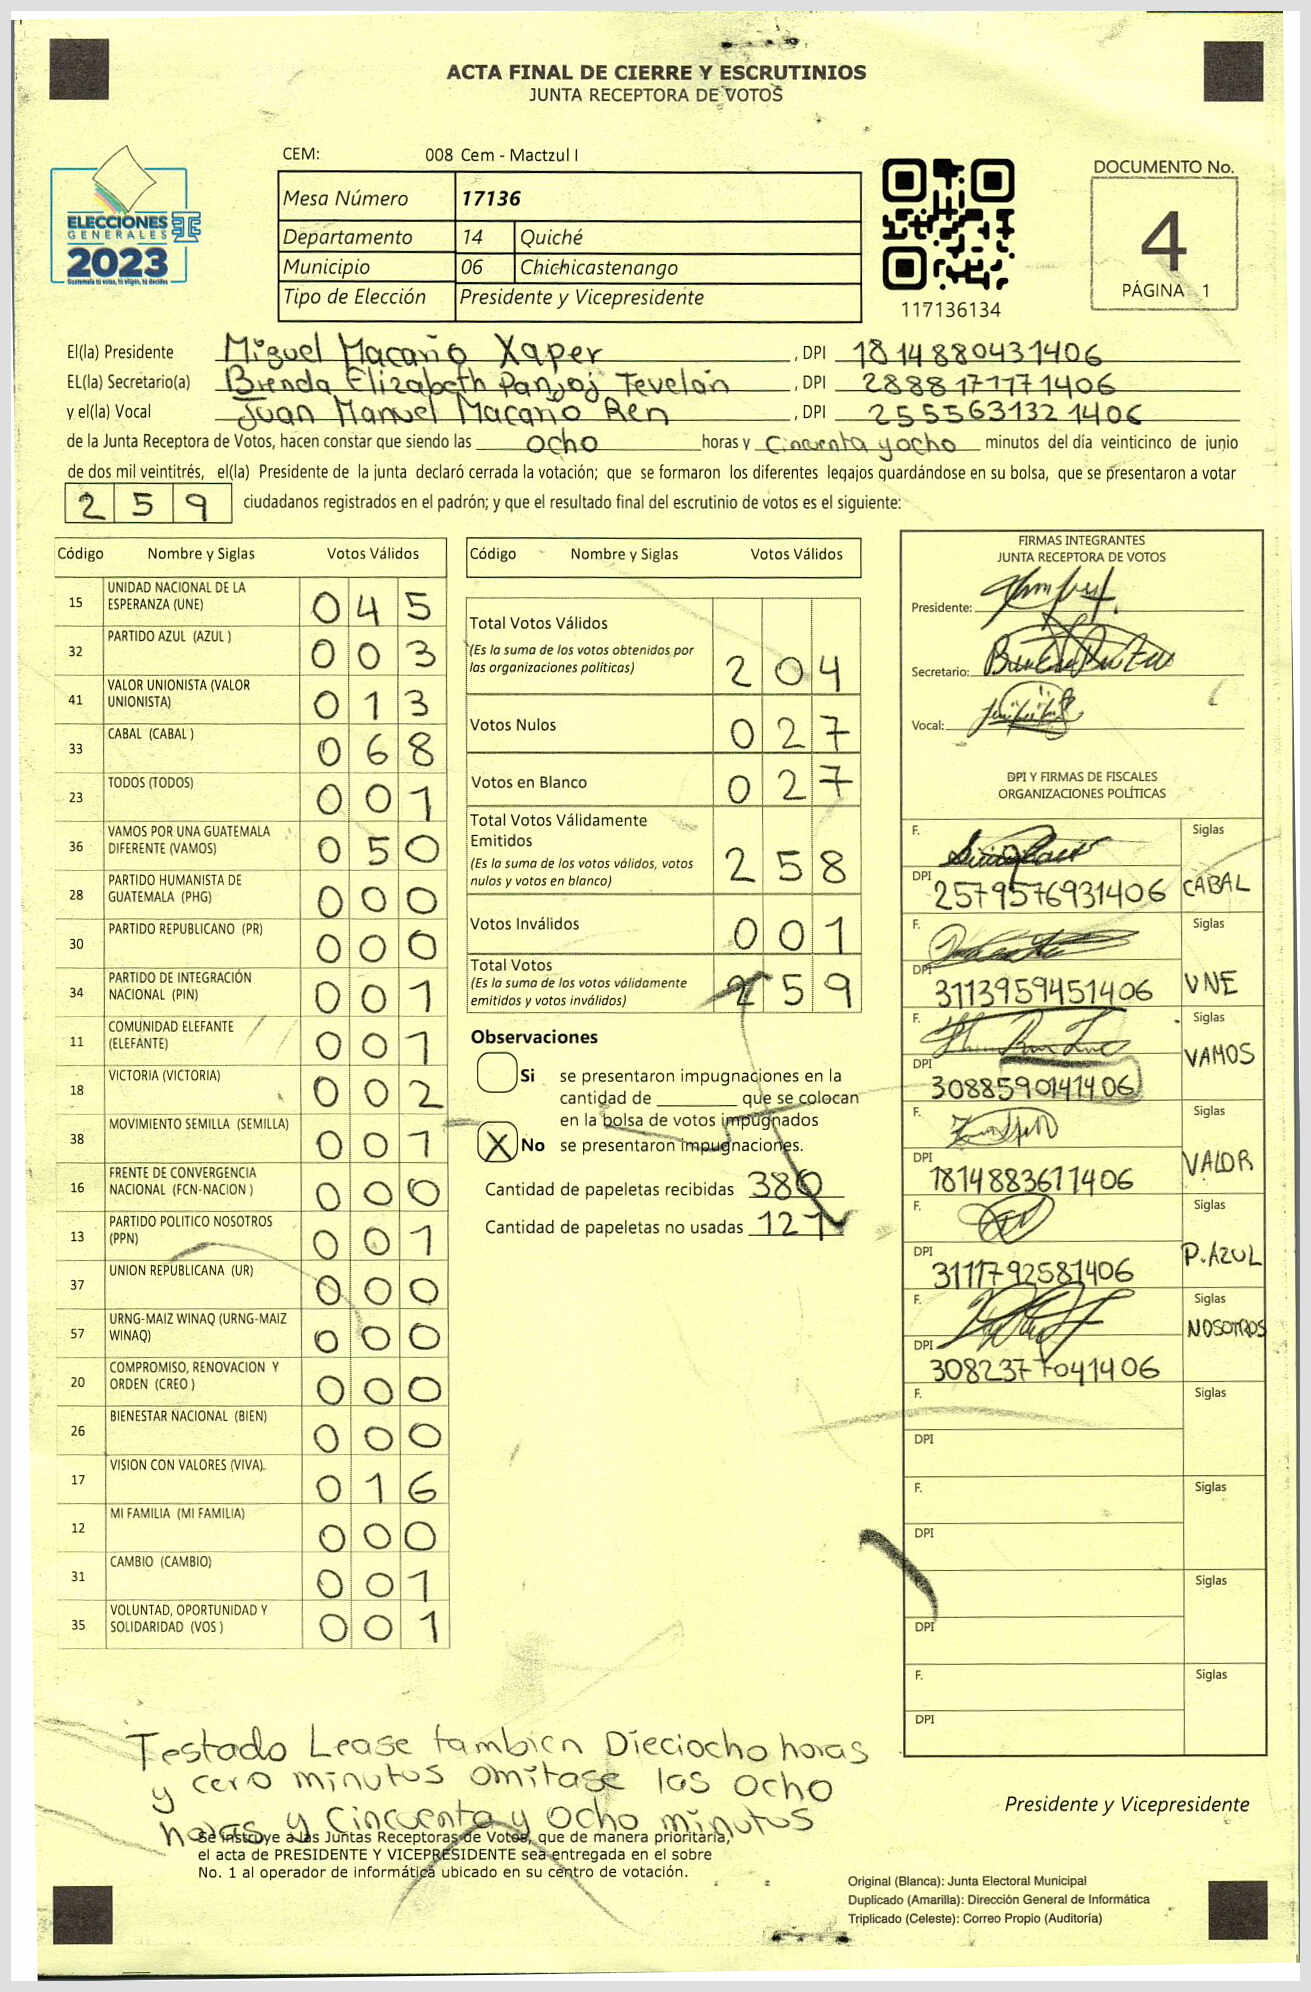 ACTA FINAL DE CIERRE Y ESCRUTINIOS
JUNTA RECEPTORA DE VOTOS
ELECCIONES
GENERALES
2023
Guatemala tú votas, tú eliges, tú decides
CEM: 008 Cem - Mactzul I
Mesa Número 17136
Departamento 14 Quiché
Municipio 06 Chichicastenango
Tipo de Elección Presidente y Vicepresidente
117136134
DOCUMENTO No.
4
PÁGINA 1
El(la) Presidente Miguel Macario Xaper, DPI 1814880431406
EL(la) Secretario(a) Brenda Elizabeth Panjoj Tevelan, DPI 2888171171406
y el(la) Vocal Juan Manuel Macario Ren, DPI 2555631321406
de la Junta Receptora de Votos, hacen constar que siendo las ocho horas y cincuenta y ocho minutos del día veinticinco de junio
de dos mil veintitrés, el(la) Presidente de la junta declaró cerrada la votación; que se formaron los diferentes legajos guardándose en su bolsa, que se presentaron a votar
259 ciudadanos registrados en el padrón; y que el resultado final del escrutinio de votos es el siguiente:
Código Nombre y Siglas Votos Válidos
15 UNIDAD NACIONAL DE LA ESPERANZA (UNE) 045
32 PARTIDO AZUL (AZUL ) 003
41 VALOR UNIONISTA (VALOR UNIONISTA) 013
33 CABAL (CABAL ) 068
23 TODOS (TODOS) 001
36 VAMOS POR UNA GUATEMALA DIFERENTE (VAMOS) 050
28 PARTIDO HUMANISTA DE GUATEMALA (PHG) 000
30 PARTIDO REPUBLICANO (PR) 000
34 PARTIDO DE INTEGRACIÓN NACIONAL (PIN) 001
11 COMUNIDAD ELEFANTE (ELEFANTE) 001
18 VICTORIA (VICTORIA) 002
38 MOVIMIENTO SEMILLA (SEMILLA) 001
16 FRENTE DE CONVERGENCIA NACIONAL (FCN-NACION ) 000
13 PARTIDO POLITICO NOSOTROS (PPN) 001
37 UNION REPUBLICANA (UR) 000
57 URNG-MAIZ WINAQ (URNG-MAIZ WINAQ) 000
20 COMPROMISO, RENOVACION Y ORDEN (CREO ) 000
26 BIENESTAR NACIONAL (BIEN) 000
17 VISION CON VALORES (VIVA) 016
12 MI FAMILIA (MI FAMILIA) 000
31 CAMBIO (CAMBIO) 001
35 VOLUNTAD, OPORTUNIDAD Y SOLIDARIDAD (VOS ) 001
Código Nombre y Siglas Votos Válidos
Total Votos Válidos
(Es la suma de los votos obtenidos por
las organizaciones políticas) 204
Votos Nulos 027
Votos en Blanco 027
Total Votos Válidamente
Emitidos
(Es la suma de los votos válidos, votos
nulos y votos en blanco) 258
Votos Inválidos 001
Total Votos
(Es la suma de los votos válidamente
emitidos y votos inválidos) 259
Observaciones
Si se presentaron impugnaciones en la
cantidad de ________ que se colocan
en la bolsa de votos impugnados
X No se presentaron impugnaciones.
Cantidad de papeletas recibidas 380
Cantidad de papeletas no usadas 121
FIRMAS INTEGRANTES
JUNTA RECEPTORA DE VOTOS
Presidente:
Secretario:
Vocal:
DPI Y FIRMAS DE FISCALES
ORGANIZACIONES POLÍTICAS
F. Siglas
DPI 2579576931406 CABAL
F. Siglas
DPI 3113959451406 UNE
F. Siglas
DPI 3088590141406 VAMOS
F. Siglas
DPI 1814883611406 VALOR
F. Siglas
DPI 3111792581406 P.AZUL
F. Siglas
DPI 3082377041406 NOSOTROS
F. Siglas
DPI
F. Siglas
DPI
F. Siglas
DPI
F. Siglas
DPI
Testado Lease tambien Dieciocho horas
y cero minutos omitase las ocho
horas y cincuenta y ocho minutos
Se instruye a las Juntas Receptoras de Votos, que de manera prioritaria,
el acta de PRESIDENTE Y VICEPRESIDENTE sea entregada en el sobre
No. 1 al operador de informática ubicado en su centro de votación.
Presidente y Vicepresidente
Original (Blanca): Junta Electoral Municipal
Duplicado (Amarilla): Dirección General de Informática
Triplicado (Celeste): Correo Propio (Auditoría)